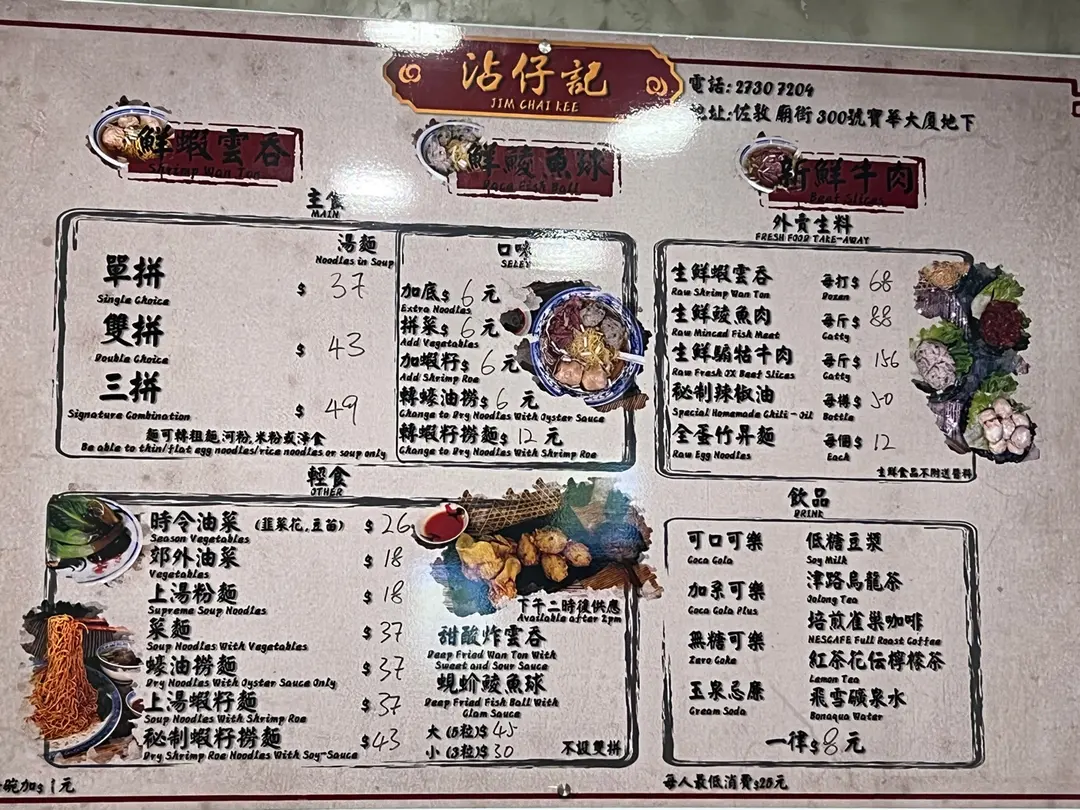 沾仔記
JIM CHAI KEE
電話: 2730 7204
地址:佐敦廟街300號寶華大厦地下
鮮蝦雲吞
Shrimp Wan Ton
鮮鯪魚球
Daca Fish Ball
新鮮牛肉
Beef Slices
主食
MAIN
湯麵
Noodles in Soup
單拼 $ 37
Single Choice
雙拼 $ 43
Double Choice
三拼 $ 49
Signature Combination
麵可轉粗麵,河粉,米粉或淨食
Be able to thin/flat egg noodles/rice noodles or soup only
口味
加底$ 6 元
Extra Noodles
拼菜$ 6 元
Add Vegetables
加蝦籽$ 6 元
Add Shrimp Roe
轉蠔油撈$ 6 元
Change to Dry Noodles With Oyster Sauce
轉蝦籽撈麵$ 12 元
Change to Dry Noodles With Shrimp Roe
外賣生料
FRESH FOOD TAKE-AWAY
生鮮蝦雲吞 每打$ 68
Raw Shrimp Wan Ton Dozen
生鮮鯪魚肉 每斤$ 88
Raw Minced Fish Meat Catty
生鮮騸牯牛肉 每斤$ 156
Raw Fresh OX Beef Slices Catty
秘制辣椒油 每樽$ 50
Special Homemade Chili-Oil Bottle
全蛋竹昇麵 每個$ 12
Raw Egg Noodles Each
生鮮食品不附送醬料
輕食
OTHER
時令油菜 (韮菜花,豆苗) $ 26
Season Vegetables
郊外油菜 $ 18
Vegetables
上湯粉麵 $ 18
Supreme Soup Noodles
菜麵 $ 37
Soup Noodles With Vegetables
蠔油撈麵 $ 37
Dry Noodles With Oyster Sauce Only
上湯蝦籽麵 $ 37
Soup Noodles With Shrimp Roe
秘制蝦籽撈麵 $43
Dry Shrimp Roe Noodles With Soy-Sauce
下午二時後供應
Available after 2pm
甜酸炸雲吞
Deep Fried Wan Ton With
Sweet and Sour Sauce
蜆蚧鯪魚球
Deep Fried Fish Ball With
Clam Sauce
大 (5粒)$ 45
小 (3粒)$ 30
不設雙拼
飲品
DRINK
可口可樂
Coca Cola
加系可樂
Coca Cola Plus
無糖可樂
Zero Coke
玉泉忌廉
Cream Soda
低糖豆漿
Soy Milk
津路烏龍茶
Oolong Tea
焙煎雀巢咖啡
NESCAFE Full Roast Coffee
紅茶花伝檸檬茶
Lemon Tea
飛雪礦泉水
Bonaqua Water
一律$ 8 元
碗加$1元
每人最低消費$25元